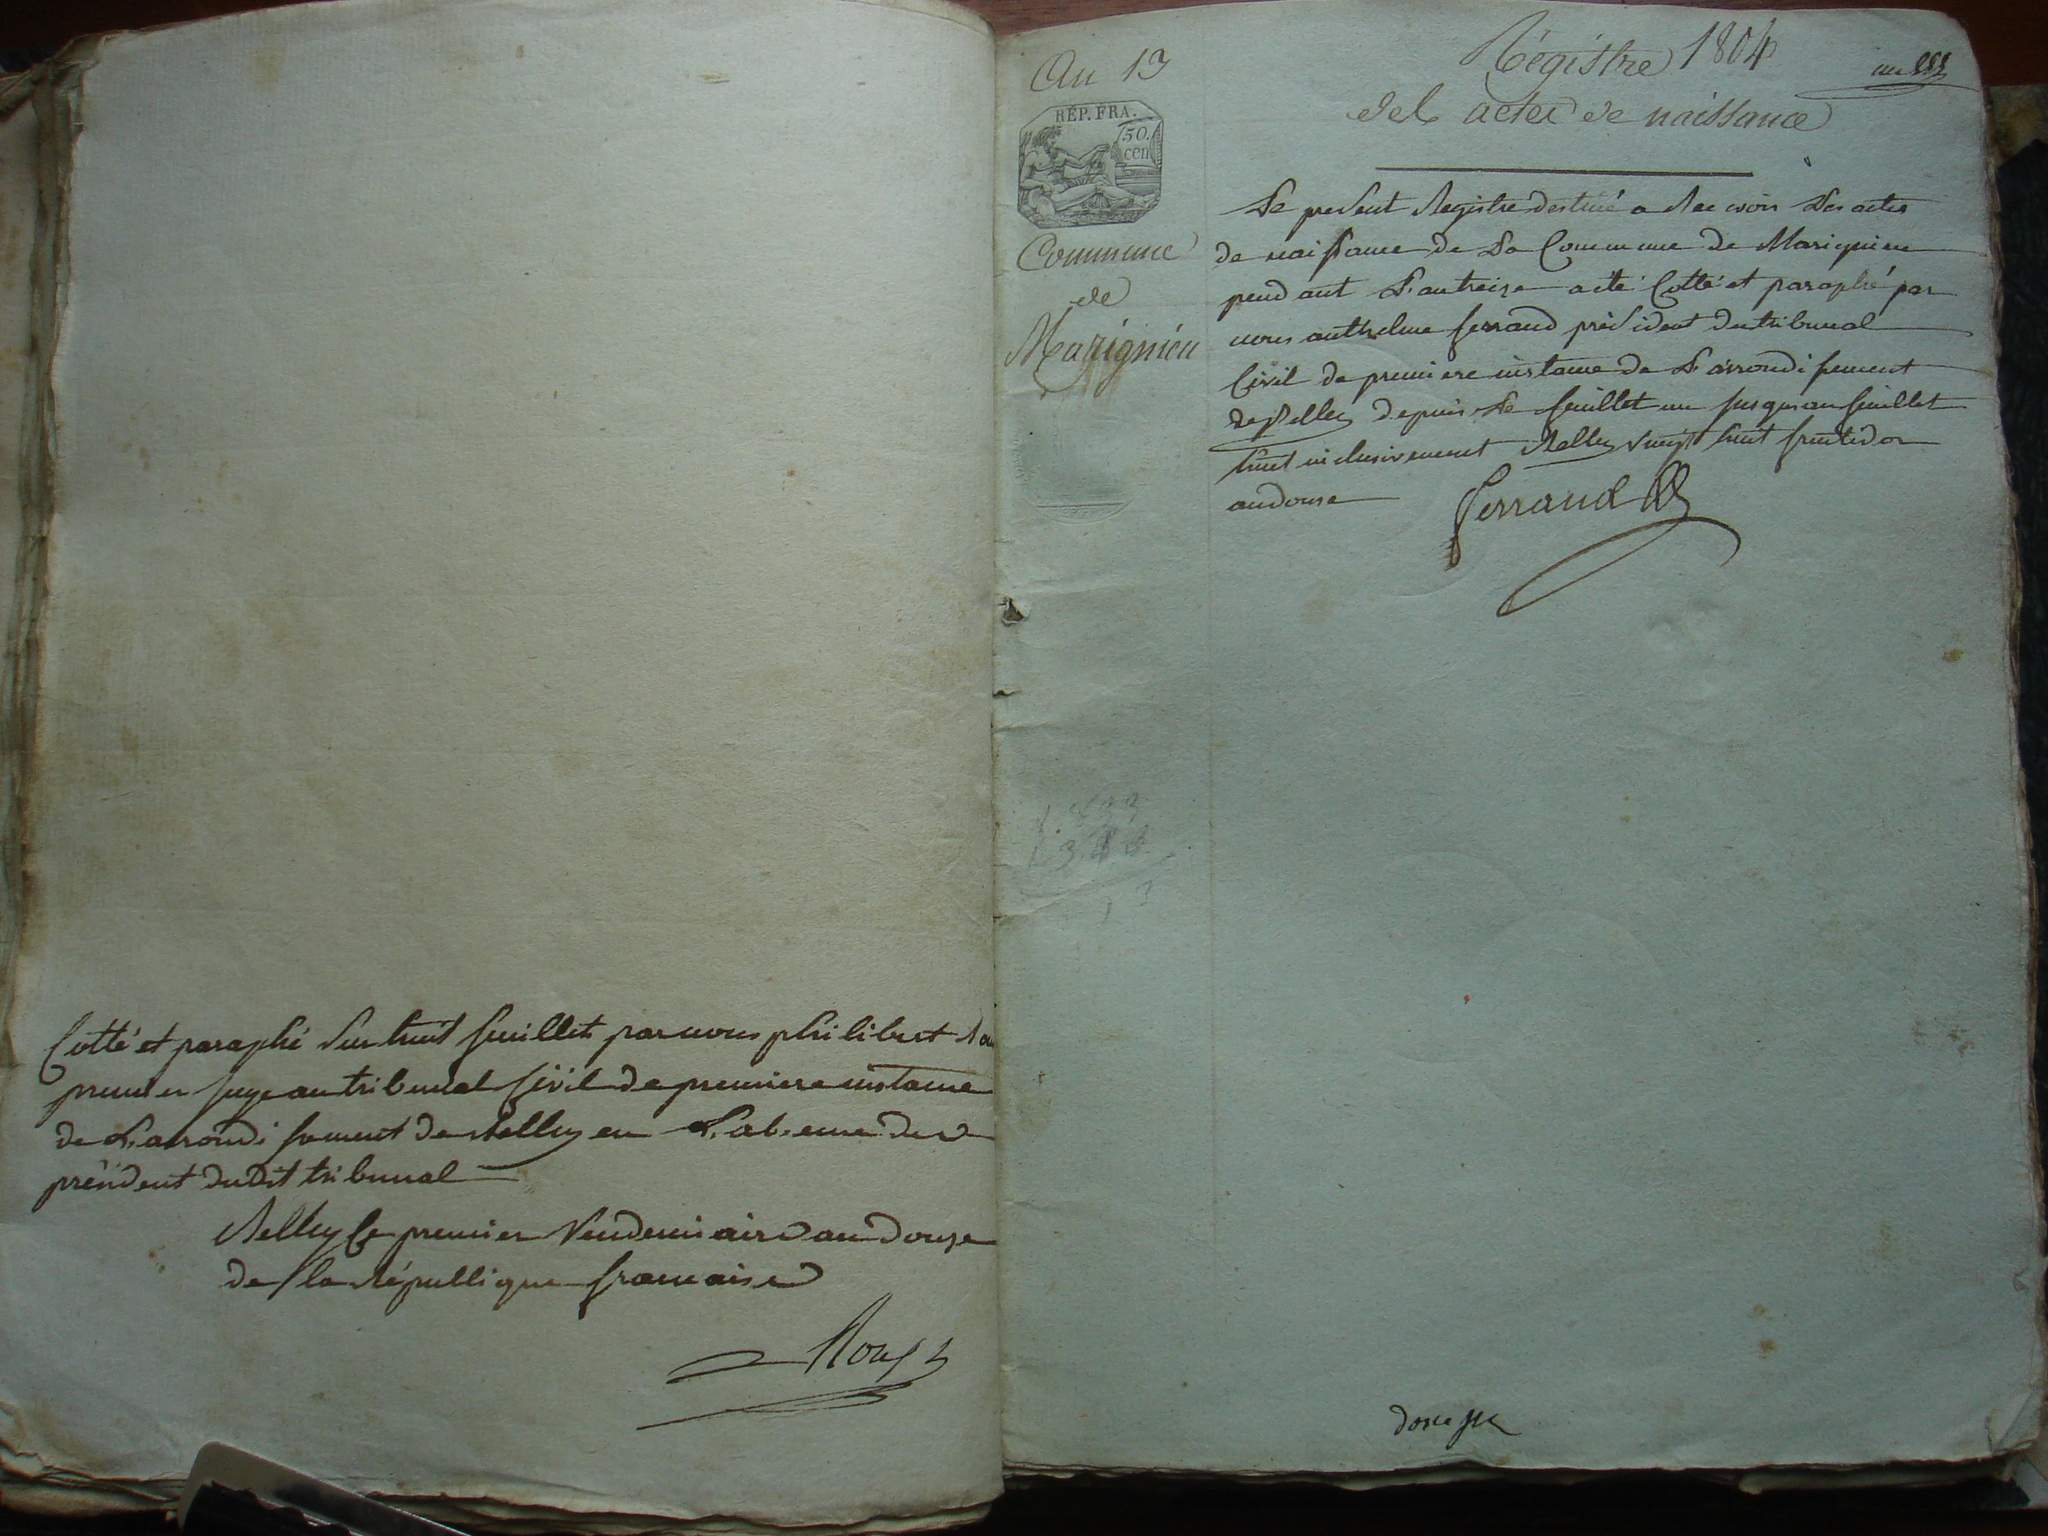 Cotté et paraphé Sur huit feuillets par nous philibert
premier juge au tribunal Civil de premiere instance
de L'arrondissement de Belley en L'absence du
président dudit tribunal
Belley Le premier Vendemiaire an Douze
de la République francaise
An 13
RÉP. FRA.
50.
cen
Commune
de
Marignieu
Régistre 1804
des actes de naissance
un
Le present Registre destiné a Recevoir Les actes
de naissance de La Commune de Marignieu
pendant L'an treize a été Cotté et paraphé par
nous anthelme ferrand président du tribunal
Civil de premiere instance de L'arrondissement
de Belley depuis Le feuillet un jusques au feuillet
huit inclusivement Belley vingt huit fructidor
an douze
ferrand